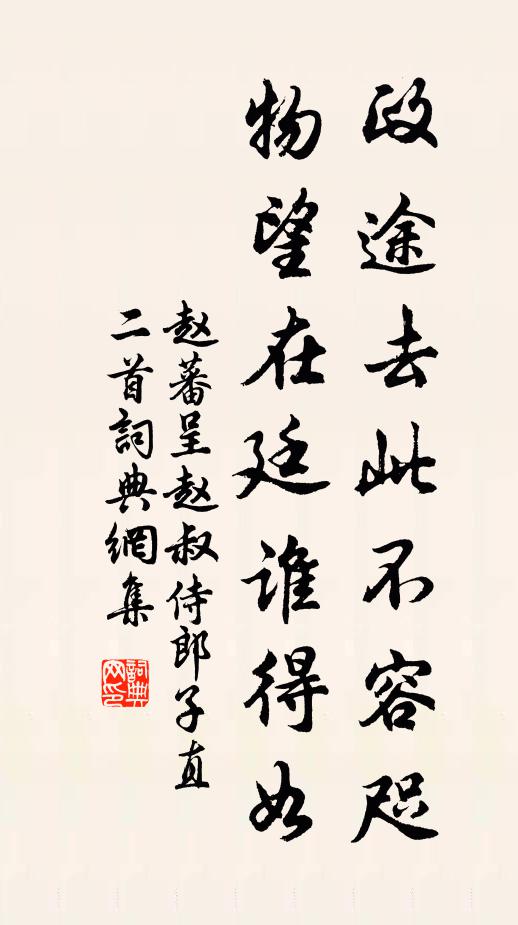 政途去此不容咫
物望在廷谁得如
赵蕃呈赵叔侍郎子直
二首詞典網集
詞典
网印